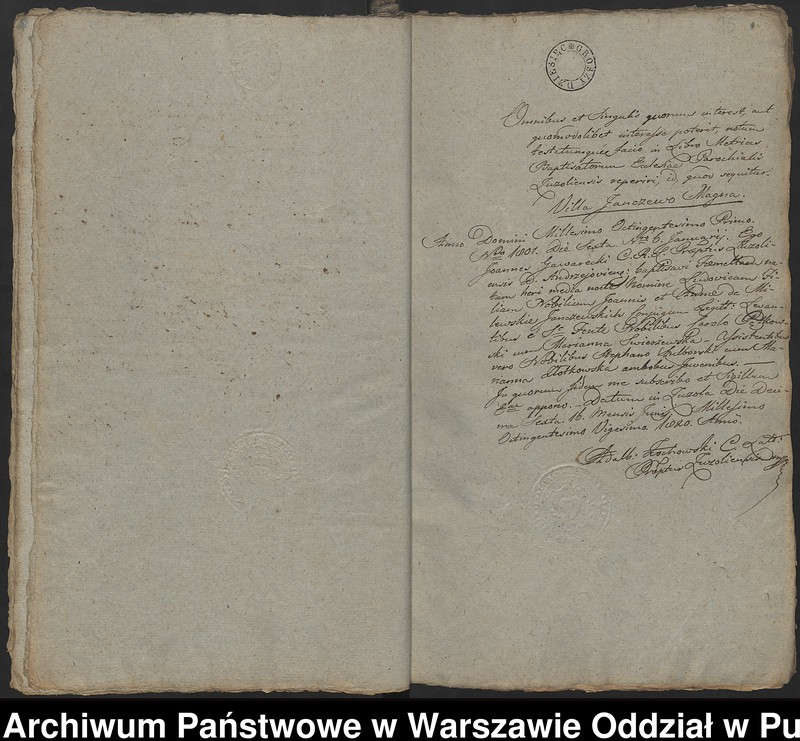 DZIESIĘC GROSZY
Omnibus et Singulis quorum interest, aut
quomodolibet interesse poterit notum
testatumque facio in Libro Metrices
Baptisatorum Ecclesiae Parochialis
Zuzoliensis reperiri, id, quod sequitur.
Villa Janczewo Magna.
Anno Domini Millesimo Octingentesimo Primo.
Nro 1801. Die Sexta Nro 6. Januarij. Ego
Joannes Jaworecki C.R.L. Praeptus Zuzoli-
ensis D. Andrzejoviens: baptisavi Femellam na-
tam heri media nocte Nomine Ludovicam Fi-
liam Nobilium Joannis et Annae de Mi-
lewskie Janczewskich Conjugum Legitt: Levan-
tibus e Sc Fonte Nobilibus Carolo
ski cum Marianna Swierzewska - Assistentibus
vero Nobilibus Stephano Szulborski cum Ma-
rianna Złotkowska ambobus Juvenibus.
In quorum fidem me subscribo et Sigillum
Eae appono. - Datum in Zuzola Die Deci-
ma Sexta 16. Mensis Junij Millesimo
Octingentesimo Vigesimo 1820. Anno.
Adalb: Trochowski C. Latt:
Praeptus Zuzoliensis
Archiwum Państwowe w Warszawie Oddział w Pu